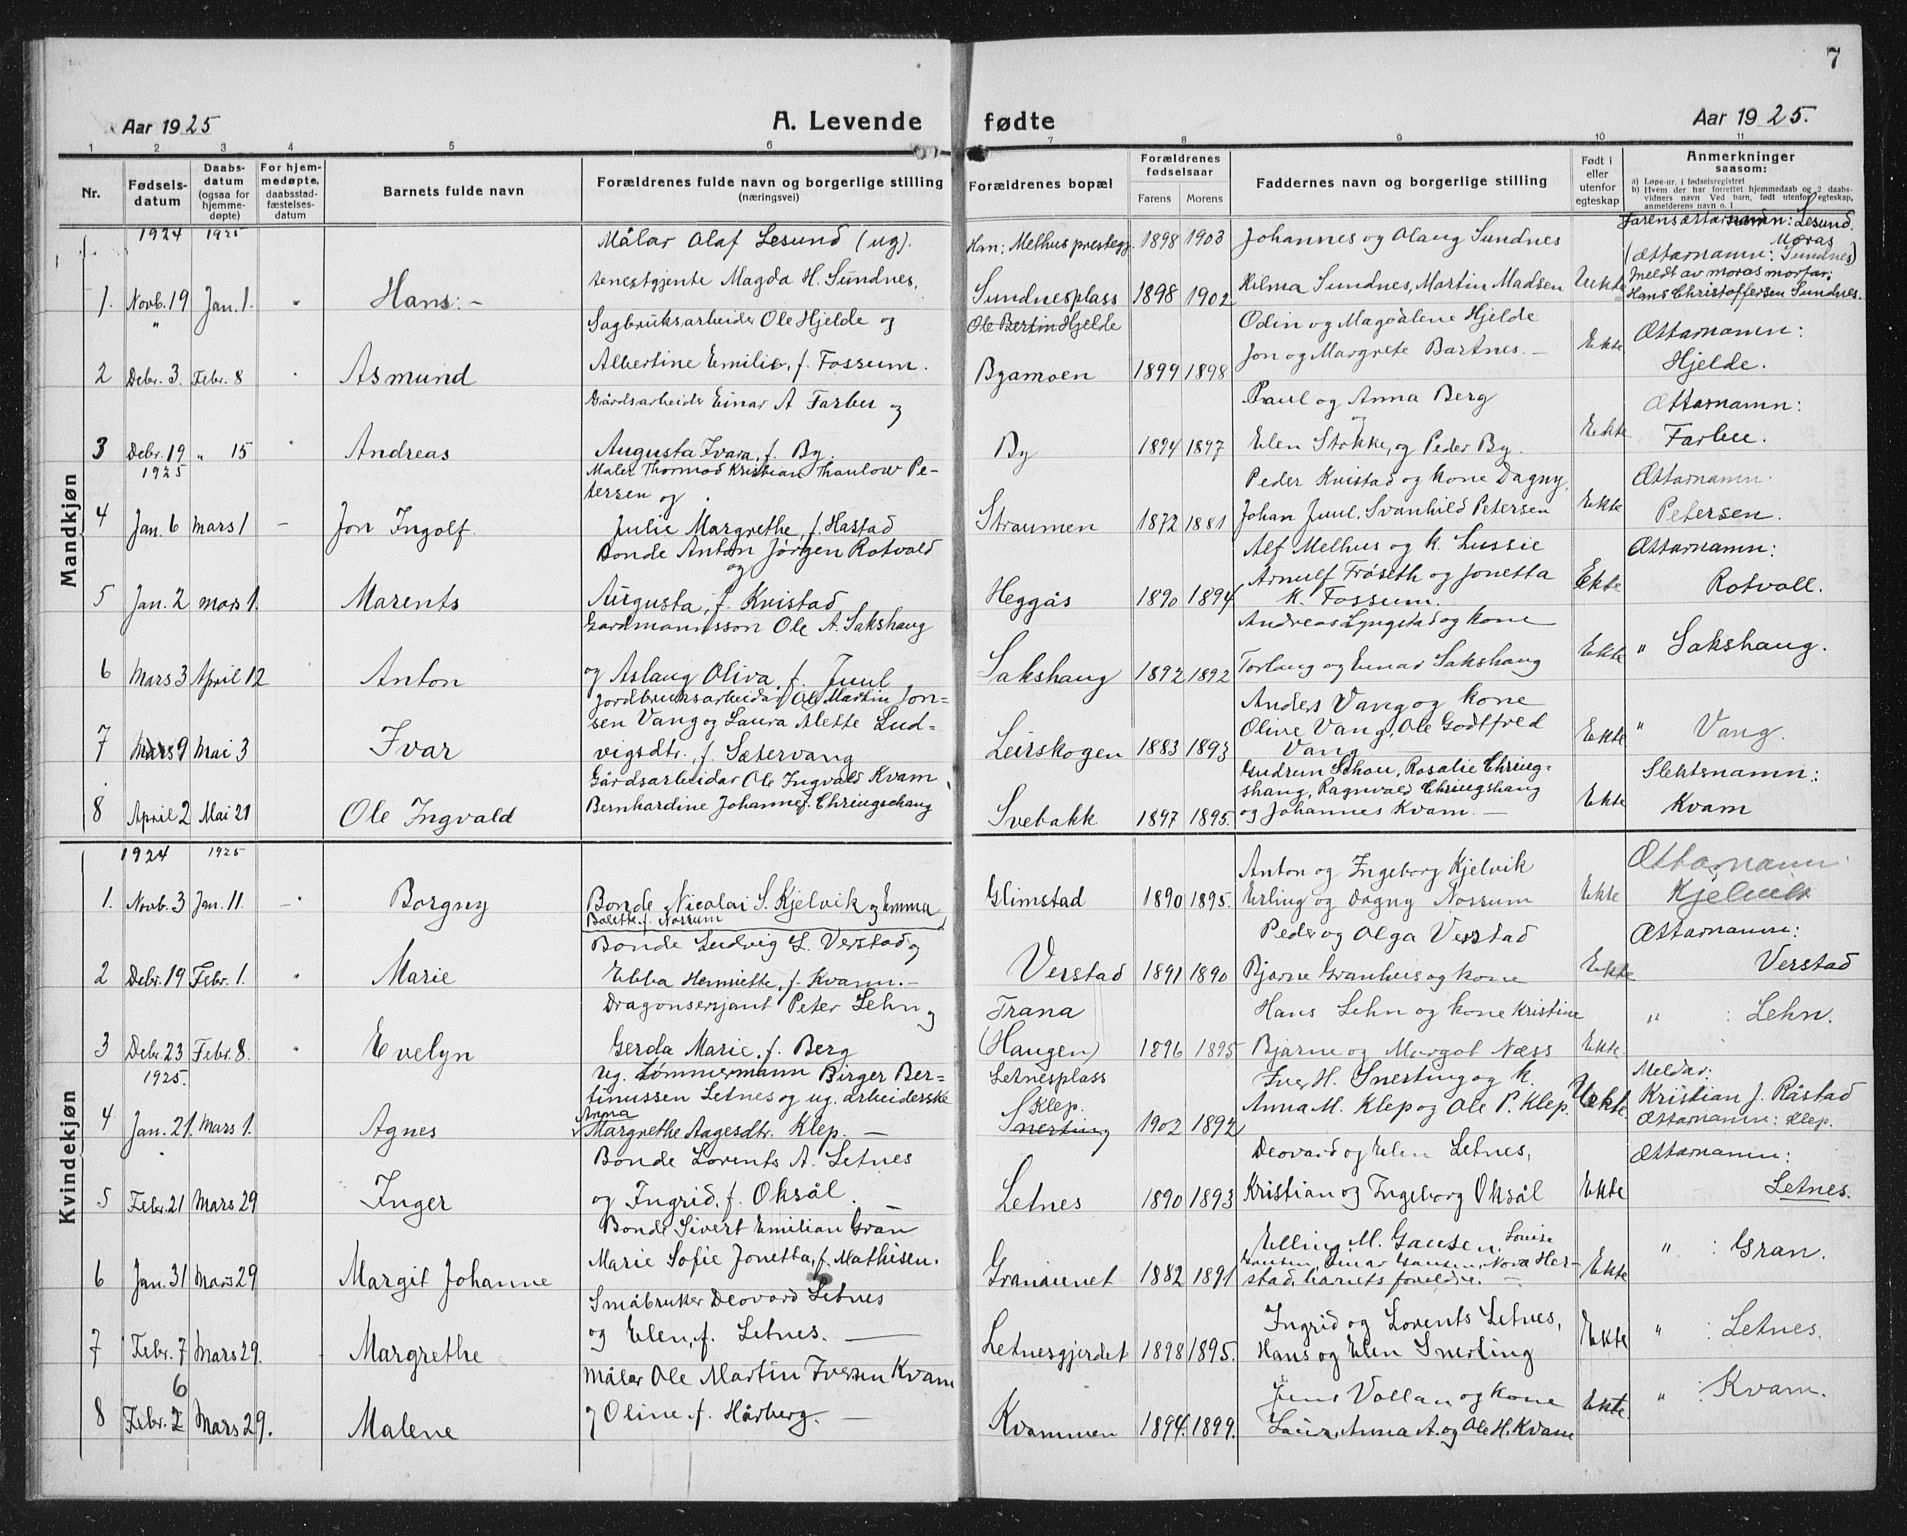 7
Aar 1925
A. Levende fødte
Aar 1925.
1 2 3 4 5 6 7 8 9 10 11
Nr.
Fødsels-datum
Daabs-datum (ogsaa for hjemme-døpte)
For hjem-medøpte, daabsstad-fæstelses-datum
Barnets fulde navn
Forældrenes fulde navn og borgerlige stilling (næringsvei)
Forældrenes bopæl
Forældrenes fødselsaar
Farens Morens
Faddernes navn og borgerlige stilling
Født i eller utenfor egteskap
Anmerkninger saasom:
a) Løpe-nr. i fødselsregistret
b) Hvem der har forrettet hjemmedaab og 2 daabs-vidners navn Ved barn, født utenfor egteskap, anmelderens navn o. l
Mandkjøn
1924 1925 Målar Olaf Lesund (ug). Han: Melhus prestegj. 1898 1903 Johannes og Olaug Sundnes Farens ættarnamn: Lesund.
Moras
(Ættarnamn: Sundnes)
1. Novb. 19 Jan. 1. " Hans: - tenestgjente Magda H. Sundnes, Sundnesplass 1898 1902 Hilma Sundnes, Martin Madsen Uekte Meldt av moras morfar:
Hans Christoffersen Sundnes.
" Sagbruksarbeider Ole Hjelde og Ole Bertin Hjelde Odin og Magdalene Hjelde Ættarnamn:
2 Debr. 3. Febr. 8 " Asmund Albertine Emilie, f. Fossum. Byamoen 1899 1898 Jon og Margrete Bartnes. - Ekte Hjelde.
Gårdsarbeider Einar A Farbu og Paul og Anna Berg Ættarnamn:
3 Debr. 19 " 15 " Andreas Augusta Ivara, f. By. By 1894 1897 Elen Stokke, og Peder By. Ekte Farbu.
1925 Maler Thormod Kristian Thaulow Pe-
tersen og Peder Kvistad og kone Dagny, Ættarnamn:
4 Jan. 6 Mars 1 - Jon Ingolf. Julie Margrethe, f. Hastad Straumen 1872 1881 Johan Juul, Svanhild Petersen Ekte Petersen.
Bonde Anton Jørgen Rotvold Alf Melhus og k. Lussie Ættarnamn:
og
5 Jan. 2 Mars 1. Marents Augusta, f. Kvistad Heggås 1890 1894 Arnulf Frøseth og Jonetta
K. Fossum. Ekte Rotvoll.
Gardmannsson Ole A. Sakshaug Andreas Lyngstad og kone
6 Mars 3 April 12 Anton og Aslaug Oliva, f. Juul Sakshaug 1892 1892 Torlaug og Einar Sakshaug Ekte " Sakshaug.
Jordbruksarbeidar Ole Martin Jon-
sen Vang og Laura Mette Lud- Andes Vang og kone
7 Mars 9 Mai 3 Ivar vigsdtr., f. Sætervang Leirskogen 1883 1893 Olive Vang, Ole Godtfred
Vang Ekte " Vang.
Gårdsarbeidar Ole Ingvald Kvam Gudrun Schou, Rosalie Chring- Slektsnamn:
8 April 2 Mai 21 Ole Ingvald Bernhardine Johanne f. Chringshaug Svebakk 1897 1895. shaug, Ragnvald Chringshaug
og Johannes Kvam. - Ekte Kvam
Kvindekjøn
1924 1925 Anton og Ingeborg Kjelvik Ættarnamn
1. Novb. 3 Jan. 11. - Borgny Bonde Nicolai S. Kjelvik og Emma
Bolette f. Nossum Glimstad 1890 1895. Erling og Dagny Nossum Ekte Kjelvik
Bonde Ludvig L. Verstad og Peder og Olga Verstad Ættarnamn:
2 Debr. 19 Febr. 1. " Marie Ebba Henriette, f. Kvam. - Verstad 1891 1890 Bjarne Granheis og kone Ekte Verstad
Dragonsersjant Peter Lehn og Trana Hans Lehn og kone Kristine " : Lehn.
3 Debr. 23 Febr. 8. " Evelyn Gerda Marie, f. Berg (Haugen) 1896 1895 Bjarne og Margot Næss Ekte.
1925. Ug. tømmermann Birger Ber-
tinussen Letnes og ug. arbeiderske Letnesplass Iver H. Snerting og k. Meldar:
4 Jan. 21. Mars 1. Agnes Anna
Margrethe Aagesdtr. Klep. - Klep.
Snerting 1902 1892 Anna M. Klep og Ole P. Klep. Uekte Kristian J. Råstad
Ættarnamn: Klep.
Bonde Lorents A. Letnes Deovard og Elen Letnes, Ættarnamn:
5 Febr. 21 Mars 29 Inger og Ingrid, f. Oksål. Letnes 1890 1893 Kristian og Ingeborg Oksål Ekte Letnes.
Bonde Sivert Emilian Gran Elling M. Gausen, Louise " : Gran.
6 Jan. 31 Mars 29 Margit Johanne Marie Sofie Jonetta, f. Mathisen. Granaunet 1882 1891 Gausen, Einar Gausen, Nora Her-
stad, barnets foreldre. - Ekte
Småbruker Deovard Letnes Ingrid og Lorents Letnes, " : Letnes.
7 Febr. 7 Mars 29. Margrethe og Elen, f. Letnes. Letnesgjerdet 1898 1895. Hans og Elen Snerting Ekte
6 Målar Ole Martin Iversen Kvam Jens Vollan og kone " : Kvam.
8 Febr. 2 Mars 29. Malene og Oline f. Hårberg. - Kvammen 1894. 1899. Laura, Anna A. og Ole H. Kvam Ekte.